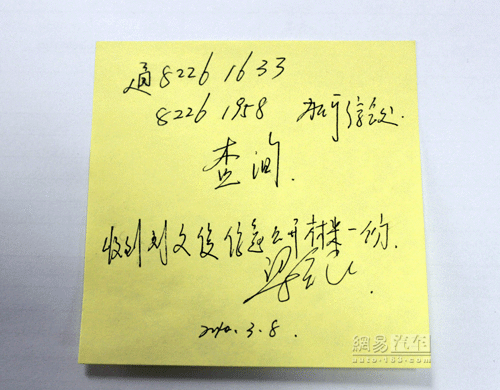 通8226 1633
8226 1958
查询.
收到刘文俊信息公开材料一份.
2010.3.8.
網易 汽车
auto.163.com